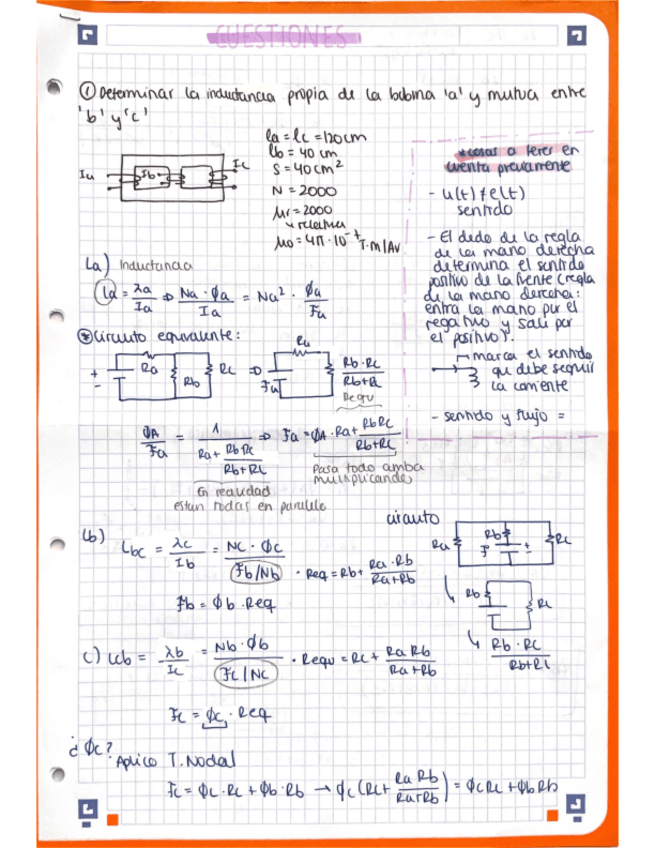 CUESTIONES
① Determinar la inductancia propia de la bobina 'a' y mutua entre
'b' y 'c'
la = lc = 120cm
lb = 40 cm
S = 40cm²
N = 2000
μr = 2000
relativa
μo = 4π·10⁻⁷ T·m/Av
Ia
Ib
Ic
*cosas a tener en
cuenta previamente
- u(t) ≠ e(t)
sentido
- El dedo de la regla
de la mano derecha
determina el sentido
positivo de la fuente (regla
de la mano derecha:
entra la mano por el
negativo y sale por
el positivo).
marca el sentido
que debe seguir
la corriente
- sentido y flujo =
La) Inductancia
La = λa/Ia ⇒ Na·ϕa/Ia = Na²·ϕa/Fa
⊛ Circuito equivalente:
+
-
Ra
Rb
Rc
⇒
Fa
Ra
Rb·Rc/Rb+Rc
Requ
ϕA/Fa = 1/Ra+ RbRc/Rb+Rc ⇒ Fa = ϕA·Ra+ RbRc/Rb+Rc
En realidad
estan todas en paralelo
Pasa todo arriba
multiplicando
Lb)
Lbc = λc/Ib = Nc·ϕc/Fb/Nb · Req = Rb+ Ra·Rb/Ra+Rb
Fb = ϕb·Req
circuito
Ra
Rb
F
+
-
Rc
Rb
Rc
Rb·Rc/Rb+Rc
c) Lcb = λb/Ic = Nb·ϕb/Fc/Nc · Requ = Rc + Ra Rb/Ra+Rb
Fc = ϕc·Req
¿ϕc?
Aplico T.Nodal
Fc = ϕc·Rc + ϕb·Rb → ϕc(Rc+ Ra Rb/Ra+Rb) = ϕcRc + ϕbRb